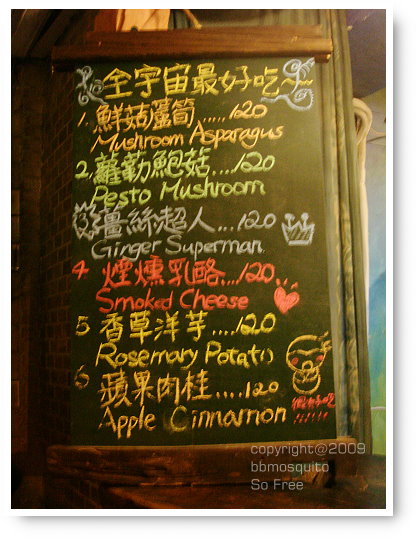 全宇宙最好吃~~
1. 鮮菇蘆筍.....120
Mushroom Asparagus
2. 蘿勒鮑菇....120
Pesto Mushroom
薑絲超人...120
Ginger Superman
4 煙燻乳酪...120
Smoked Cheese
5 香草洋芋....120
Rosemary Potato
6 蘋果肉桂....120
Apple Cinnamon
copyright@2009
bbmosquito
So Free